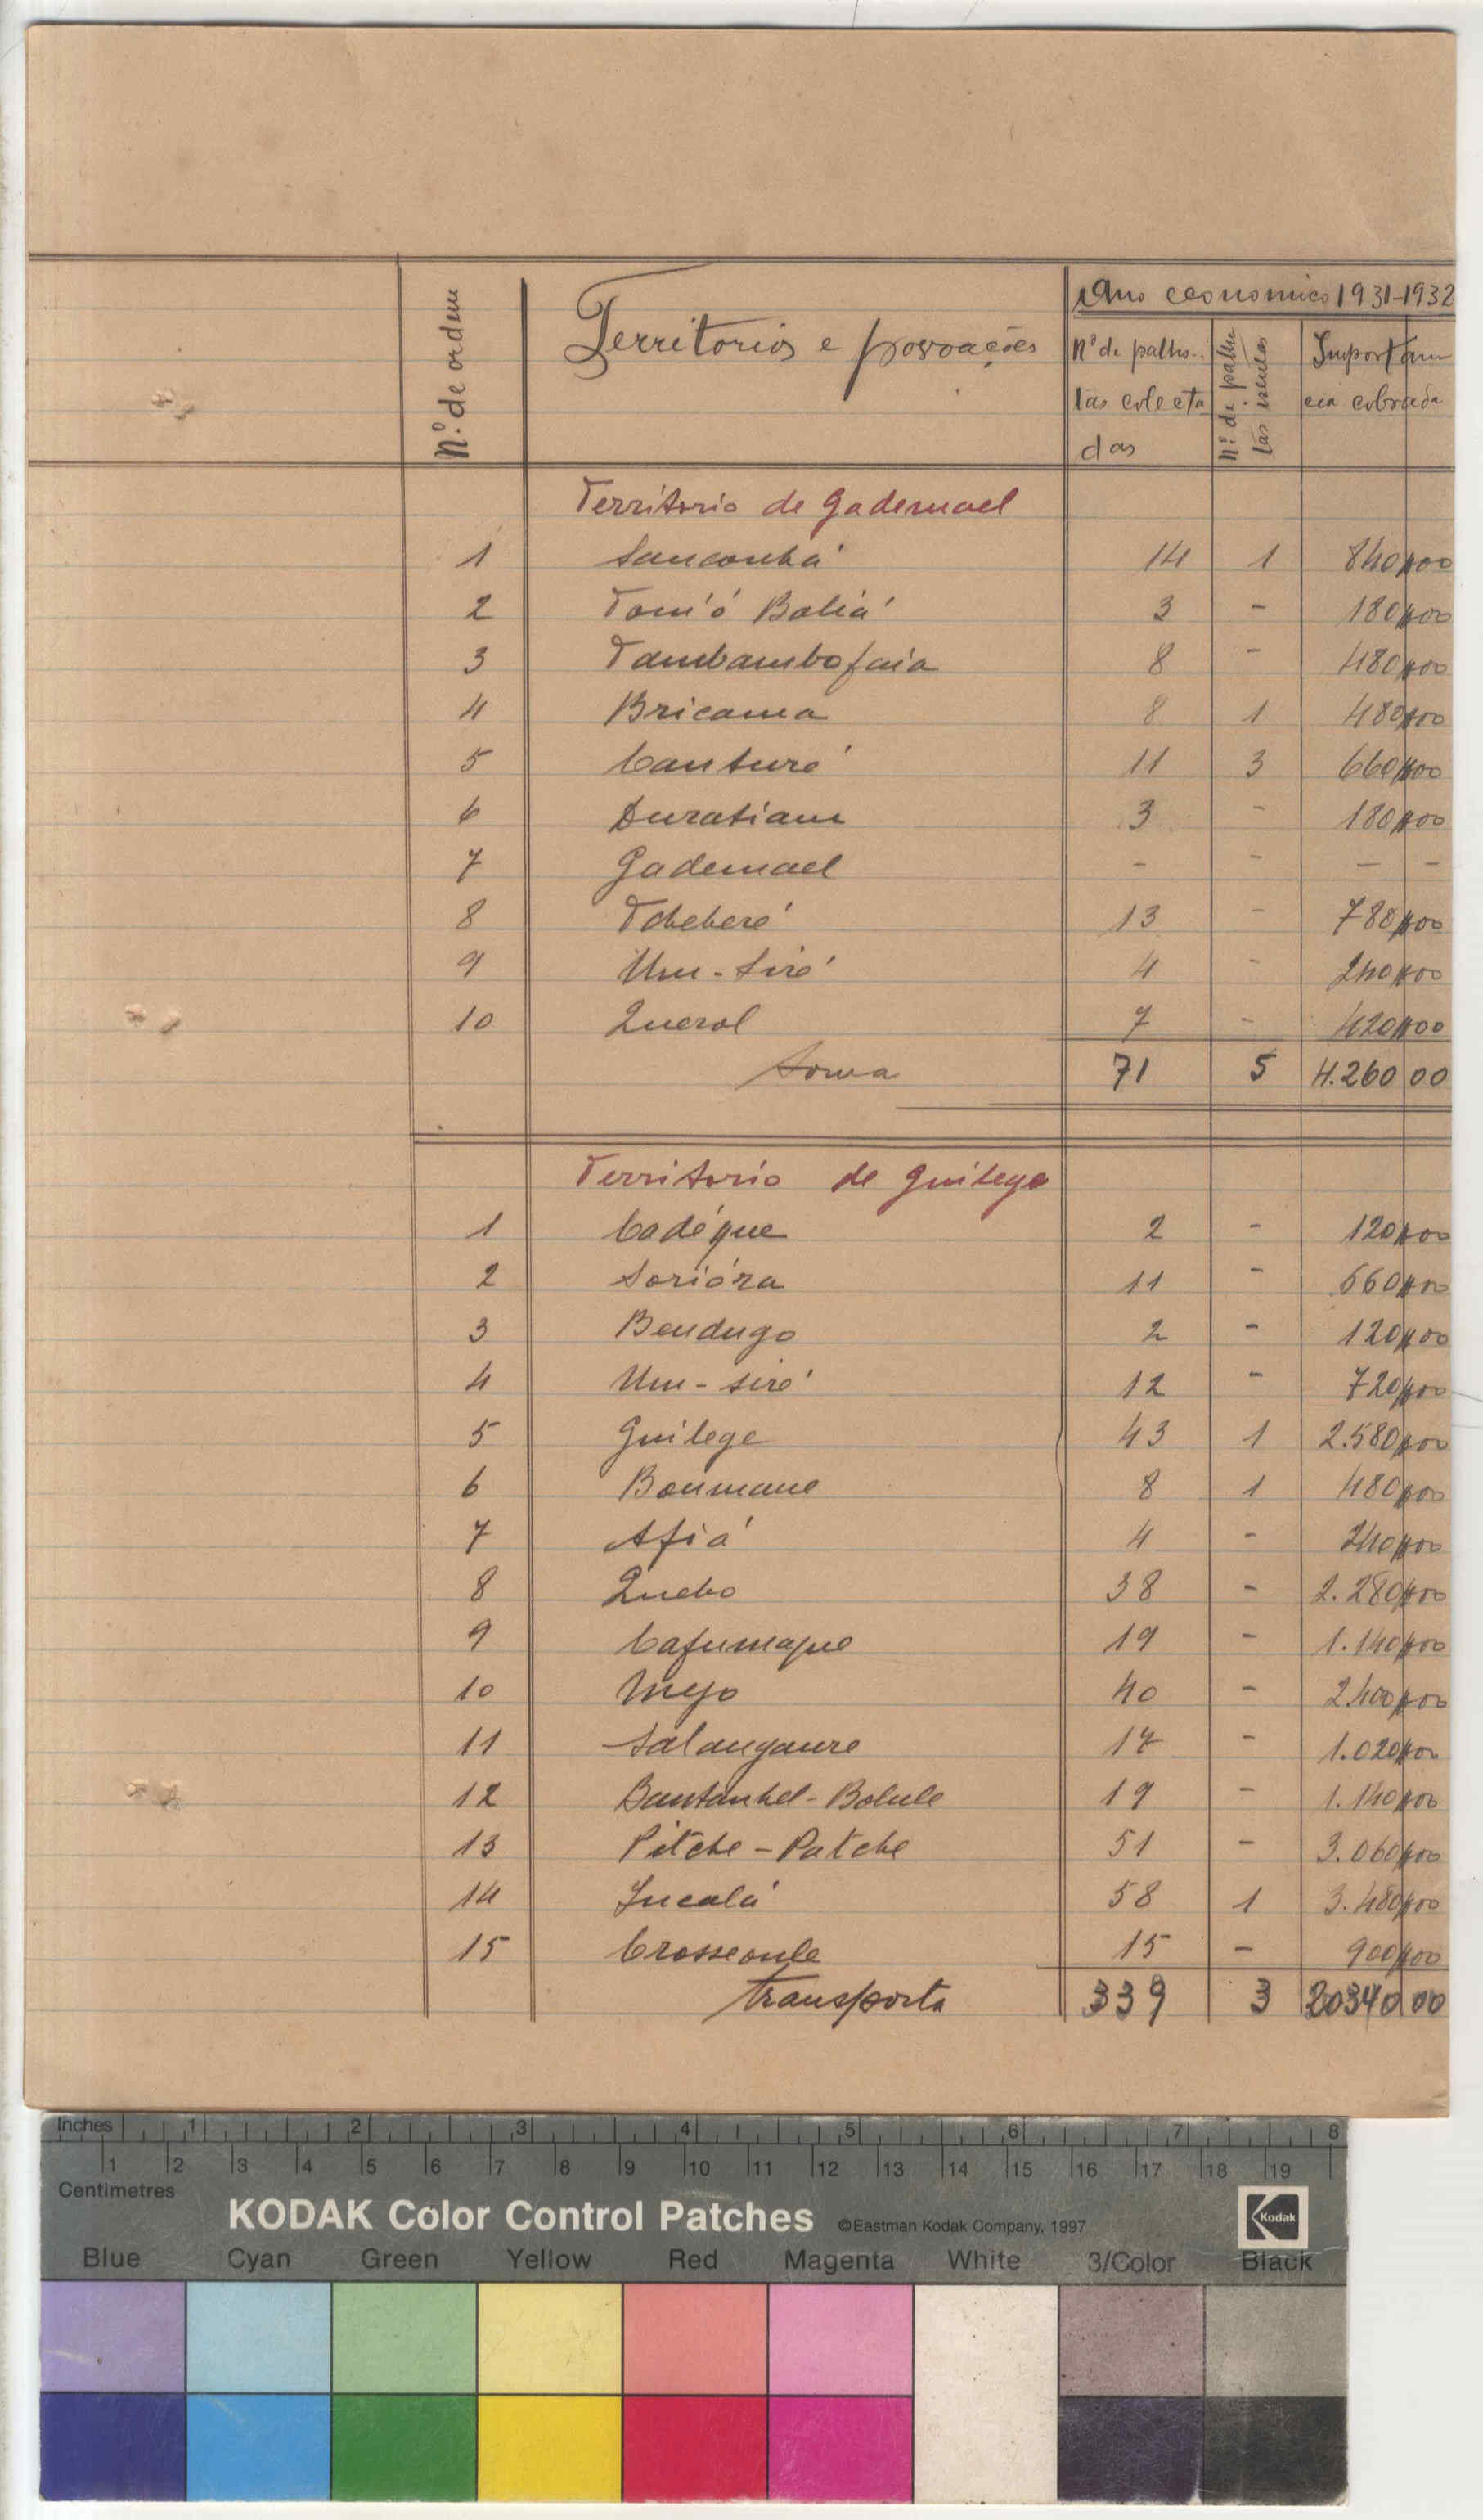 Nº. de ordem
Territorios e povoações
Ano economico 1931-1932
Nº de palho-
tas colecta
das
Nº. de palho
tas isentas
Importan
cia cobrada
Territorio de Gademael
1 Sanconhá 14 1 840$00
2 Tom'ó Baliá 3 - 180$00
3 Tambambofaia 8 - 480$00
4 Bricama 8 1 480$00
5 Canturé 11 3 660$00
6 Duratiam 3 - 180$00
7 Gademael - - - -
8 Tcheheré 13 - 780$00
9 Um-Siré 4 - 240$00
10 Querol 7 - 420$00
Soma 71 5 4.260 00
Territorio de Guilege
1 Cadéque 2 - 120$00
2 Sorióra 11 - 660$00
3 Bendugo 2 - 120$00
4 Um-siré 12 - 720$00
5 Guilege 43 1 2.580$00
6 Boumane 8 1 480$00
7 Afiá 4 - 240$00
8 Quebo 38 - 2.280$00
9 Cafumaque 19 - 1.140$00
10 Mejo 40 - 2.400$00
11 Salangaure 17 - 1.020$00
12 Bantanhel-Bolule 19 - 1.140$00
13 Pitche-Patche 51 - 3.060$00
14 Incalá 58 1 3.480$00
15 Crosseonle 15 - 900$00
Transporta 339 3 20340 00
Inches 1 2 3 4 5 6 7 8
1 2 3 4 5 6 7 8 9 10 11 12 13 14 15 16 17 18 19
Centimetres
KODAK Color Control Patches ©Eastman Kodak Company, 1997 Kodak
Blue Cyan Green Yellow Red Magenta White 3/Color Black